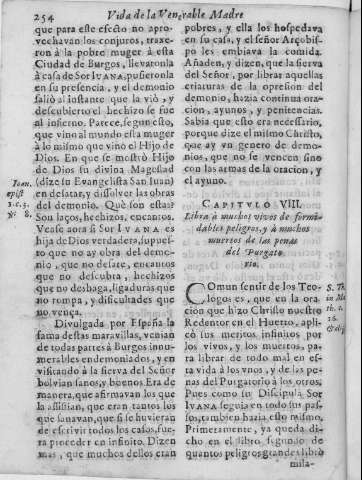 254 Vida de la Venerable Madre
que para este efecto no apro-
vechavan los conjuros, traxe-
ron à la pobre muger à esta
Ciudad de Burgos, llevaronla
à casa de Sor IVANA, pusieronla
en su presencia, y el demonio
saliò al instante que la viò, y
descubierto el hechizo se fue
al infierno. Parece, segun esto,
que vino al mundo esta muger
à lo mismo que vino el Hijo de
Dios. En que se mostrò Hijo
de Dios su divina Magestad
(dize su Evangelista San Iuan)
en desatar, y dissolver las obras
del demonio. Què son estas?
Son laços, hechizos, encantos.
Vease aora si Sor IVANA es
hija de Dios verdadera, supues-
to que no ay obra del demo-
nio, que no desate, encantos
que no descubra, hechizos
que no deshaga, ligaduras que
no rompa, y dificultades que
no vença.
Divulgada por España la
fama destas maravillas, venian
de todas partes à Burgos innu-
merables endemoniados, y en
visitando à la sierva del Señor
bolvian sanos, y buenos. Era de
manera, que afirmavan los que
la assistian, que eran tantos los
que sanavan, que si se huvieran
de escrivir todos los casos, fue-
ra proceder en infinito. Dizen
mas, que muchos dellos eran
Ioan.
epist.
1. c. 3.
℣. 8.
pobres, y ella los hospedava
en su casa, y el señor Arçobis-
po les embiava la comida.
Añaden, y dizen, que la sierva
del Señor, por librar aquellas
criaturas de la opresion del
demonio, hazia continua ora-
cion, ayunos, y penitencias.
Sabia que esto era necessario,
porque dize el mismo Christo,
que ay vn genero de demo-
nios, que no se vencen sino
con las armas de la oracion, y
el ayuno.
CAPITVLO VIII.
Libra à muchos vivos de formi-
dables peligros, y à muchos
muertos de las penas
del Purgato-
rio.
COmun sentir de los Teo-
logos es, que en la ora-
cion que hizo Christo nuestro
Redentor en el Huerto, apli-
cò sus meritos infinitos por
los vivos, y los muertos, pa-
ra librar de todo mal en es-
ta vida à los vnos, y de las pe-
nas del Purgatorio à los otros.
Pues como su Discipula Sor
IVANA seguia en todo sus pas-
sos, tambien hazia esto mismo.
Primeramente, ya queda di-
cho en el libro segundo de
quantos peligros grandes librò
S. Th.
in Ma
th. c.
26.
mila-